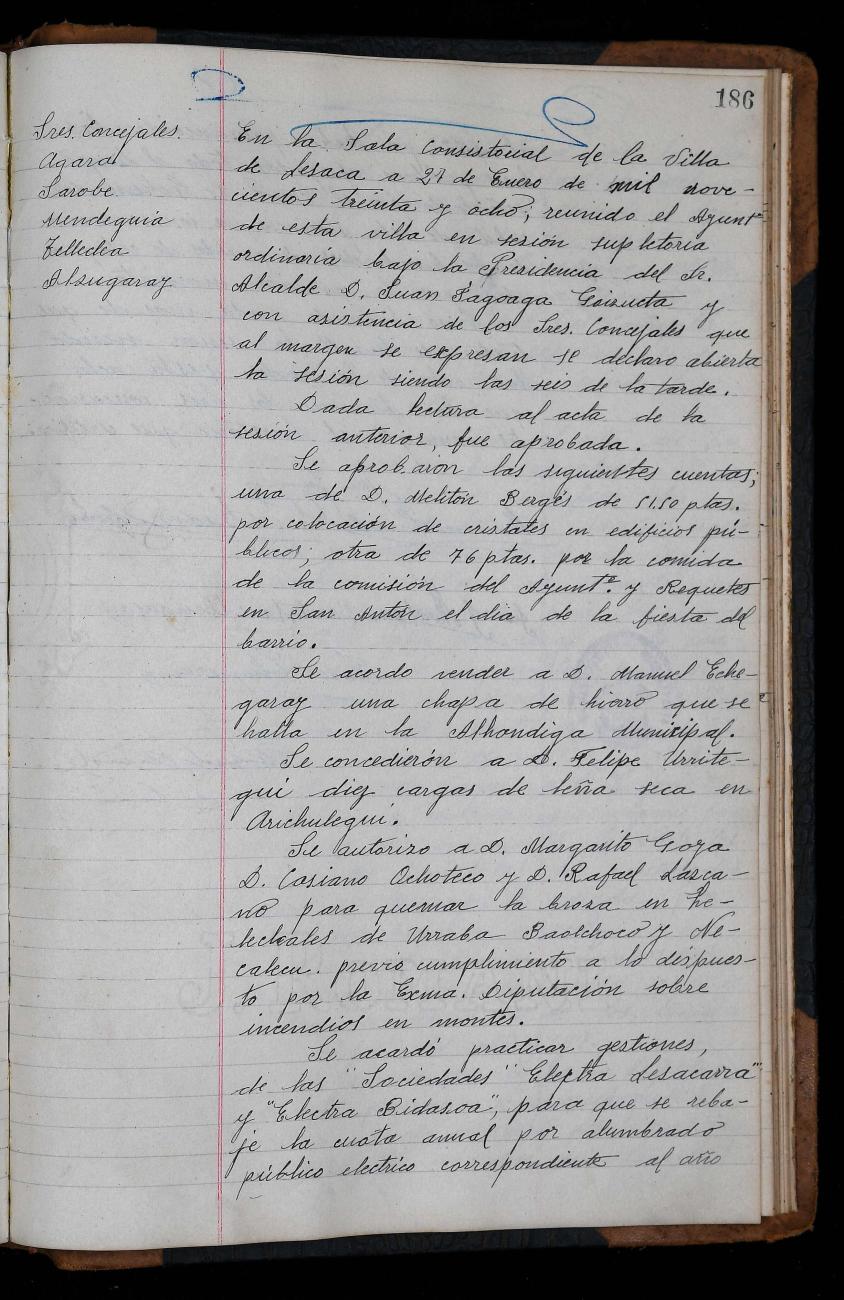 186
Sres. Concejales.
Agara
Sarobe
Mendeguia
Tellechea
Alzugaray
En la Sala Consistorial de la Villa
de Lesaca a 27 de Enero de mil nove-
cientos treinta y ocho, reunido el Ayuntº
de esta villa en sesión supletoria
ordinaria bajo la Presidencia del Sr.
Alcalde D. Juan Fagoaga Goizueta y
con asistencia de los Sres. Concejales que
al margen se expresan se declaro abierta
la sesión siendo las seis de la tarde.
Dada lectura al acta de la
sesión anterior, fue aprobada.
Se aprobaron las siguientes cuentas;
una de D. Melitón Bergés de 51.50 ptas.
por colocación de cristales en edificios pú-
blicos; otra de 76 ptas. por la comida
de la comisión del Ayuntº. y Requetes
en San Antón el dia de la fiesta del
barrio.
Se acordo vender a D. Manuel Eche-
garay una chapa de hierro que se
halla en la Alhondiga Municipal.
Se concedierón a D. Felipe Urrite-
gui diez cargas de leña seca en
Arichulegui.
Se autorizo a D. Margarito Goya
D. Casiano Ochoteco y D. Rafael Lazca-
no para quemar la broza en he-
lechales de Urraba Baolchoco y Ne-
calecu. previo cumplimiento a lo dispues-
to por la Exma. Diputación sobre
incendios en montes.
Se acardó practicar gestiones,
de las "Sociedades" Electra Lesacarra"
y "Electra Bidasoa", para que se reba-
je la cuota anual por alumbrado
público electrico correspondiente al año